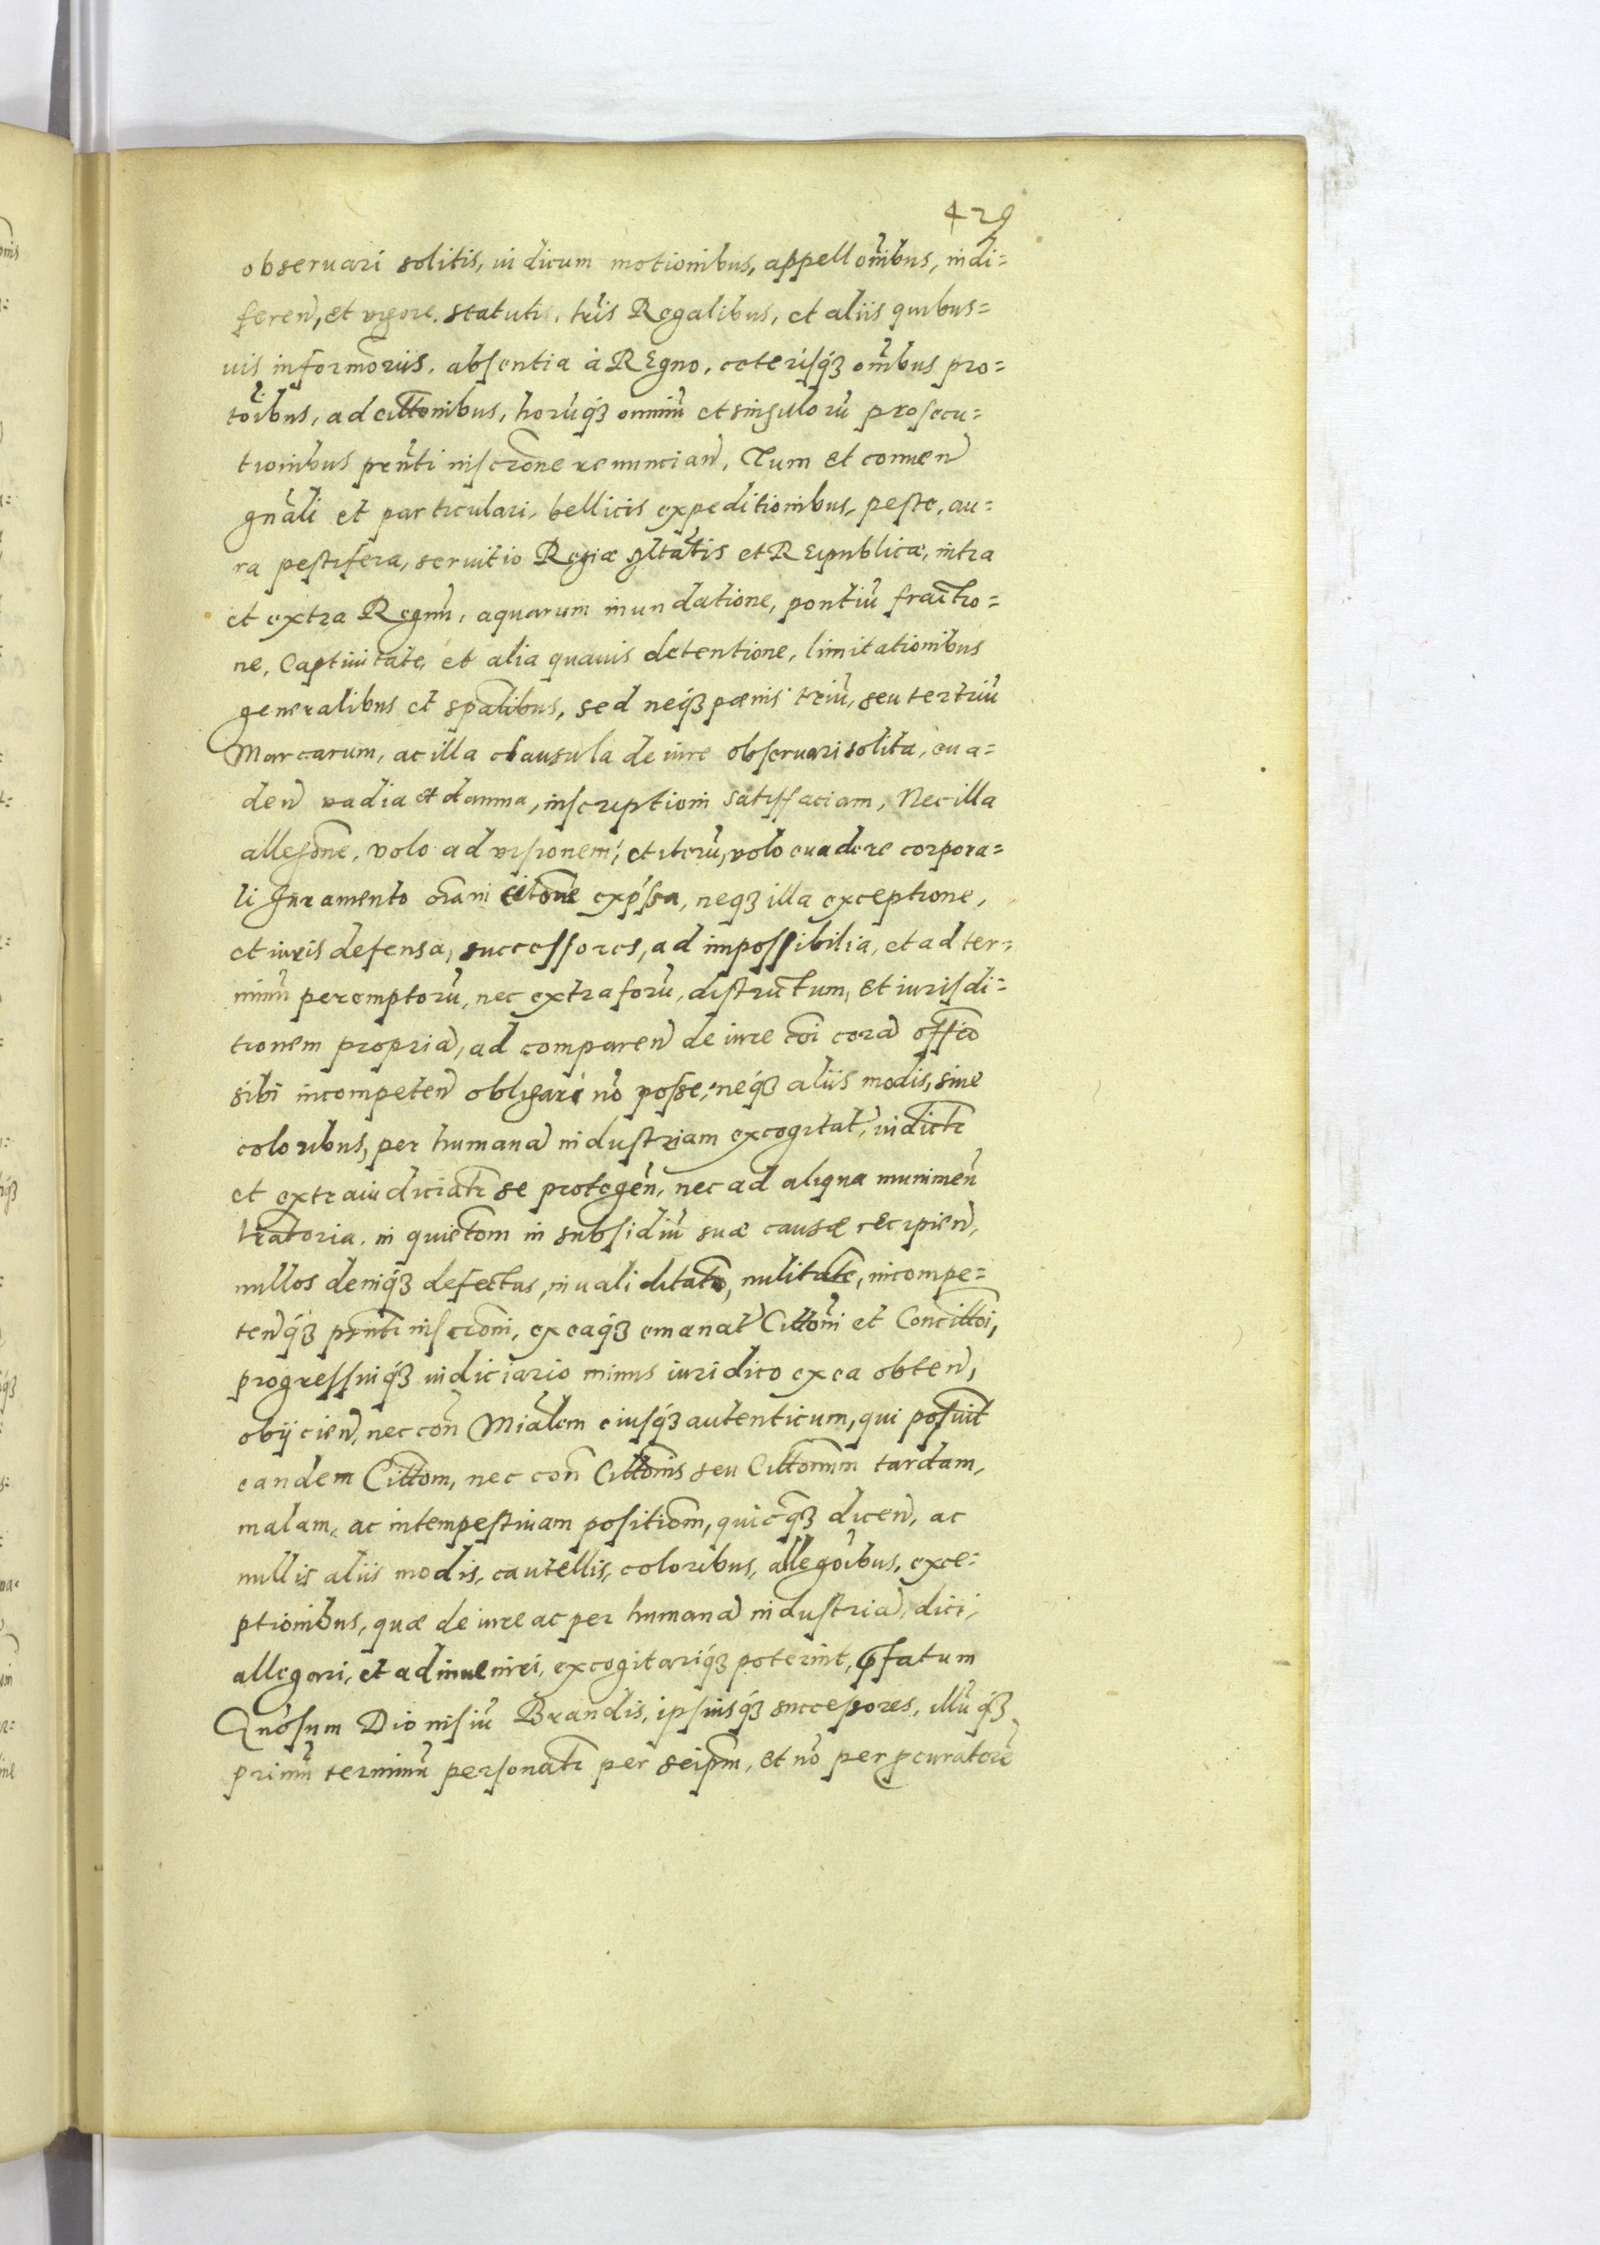 429
obseruari solitis, iudicum motionibus, appellonibus, indi=
feren, et vigore statutis, tris Regalibus, et aliis quibus=
uis informoriis, absentia à Regno, ceterisq3 omibus pro=
toibus, ad cittonibus, horuq3 omniu et singuloru prosecu=
tionibus prnti inscrone renuncian, Tum et conuen
gnali et particulari, bellicis expeditionibus, peste, au=
ra pestifera, seruitio Regiæ Mtatis et Reipublicæ, intra
et extra Regnu, aquarum inundatione, pontiu fractio=
ne, Captiuitate, et alia quauis detentione, limitationibus
generalibus et spalibus, sed neq3 pænis triu, seu tertriu
Marcarum, ac illa clausula de iure obseruari solita, eua=
den vadia et damna, inscriptioni satisfaciam, Nec illa
allegone, volo ad visionem, et iteru, volo euadere corpora=
li Juramento expssa, neq3 illa exceptione,
et iuris defensa, successores, ad impossibilia, et ad ter=
minu peremptoru, nec extra foru, districtum, et iurisdi=
tionem propria, ad comparen de iure coi cora officio
sibi incompeten obligari no posse, neq3 aliis modis, siue
coloribus, per humana industriam excogitat, iudictr
et extraiudiciatr se protegen, nec ad aliqua munimen
tratoria, in quietom in subsidiu suæ causæ recipien,
nullos deniq3 defectus, inualiditate, nulitate, incompe=
tenq3 prnti inscrioni, ex eaq3 emanat Cittoni et Concittoi,
progressuiq3 iudiciario minus iuridico ex ea obten,
obijcien, nec con Mialem eiusq3 autenticum, qui posuit
eandem Cittom, nec con Cittonis seu Cittonum tardam,
malam, ac intempestiuam positiom, quicq3 dicen, ac
nullis aliis modis, cautellis, coloribus, allegoibus, exce=
ptionibus, quæ de iure ac per humana industria, dici,
allegari, et adinueniri, excogitariq3 poterint, pfatum
Gnosum Dionisiu Brandis, ipsiusq3 successores, illuq3
primu terminu personatr per seipm, et no per pcuratore